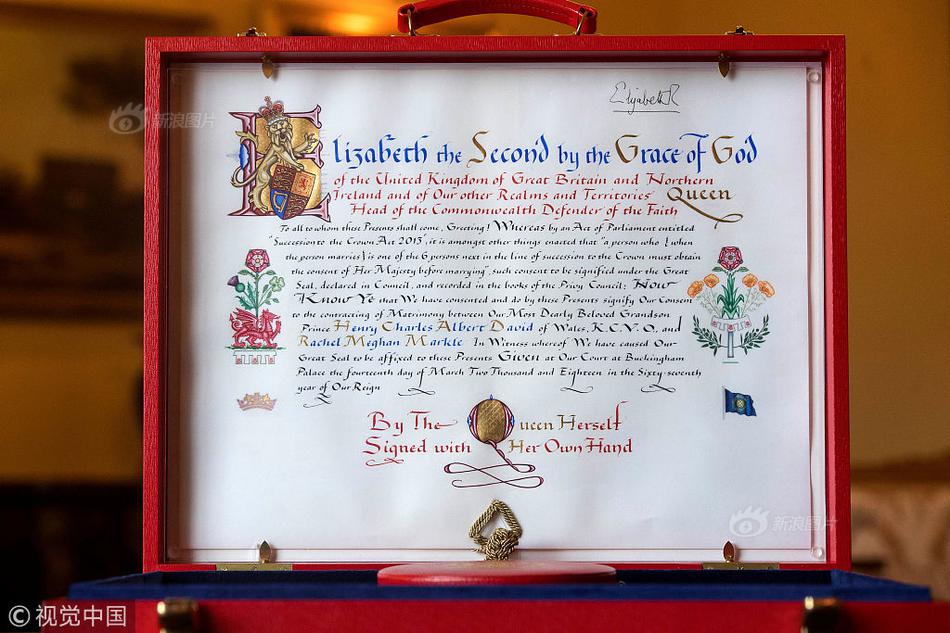 ElizabethR
Elizabeth the Second by the Grace of God
of the United Kingdom of Great Britain and Northern
Ireland and of Our other Realms and Territories Queen
Head of the Commonwealth Defender of the Faith
To all to whom these Presents shall come, Greeting! Whereas by an Act of Parliament entitled
"Succession to the Crown Act 2013", it is amongst other things enacted that "a person who (when
the person marries) is one of the 6 persons next in the line of succession to the Crown must obtain
the consent of Her Majesty before marrying", such consent to be signified under the Great
Seal, declared in Council, and recorded in the books of the Privy Council; Now
Know Ye that We have consented and do by these Presents signify Our Consent
to the contracting of Matrimony between Our Most Dearly Beloved Grandson
Prince Henry Charles Albert David of Wales, K.C.V.O., and
Rachel Meghan Markle In Witness whereof We have caused Our
Great Seal to be affixed to these Presents Given at Our Court at Buckingham
Palace the fourteenth day of March Two Thousand and Eighteen in the Sixty-seventh
year of Our Reign
By The Queen Herself
Signed with Her Own Hand
新浪图片
新浪图片
© 视觉中国